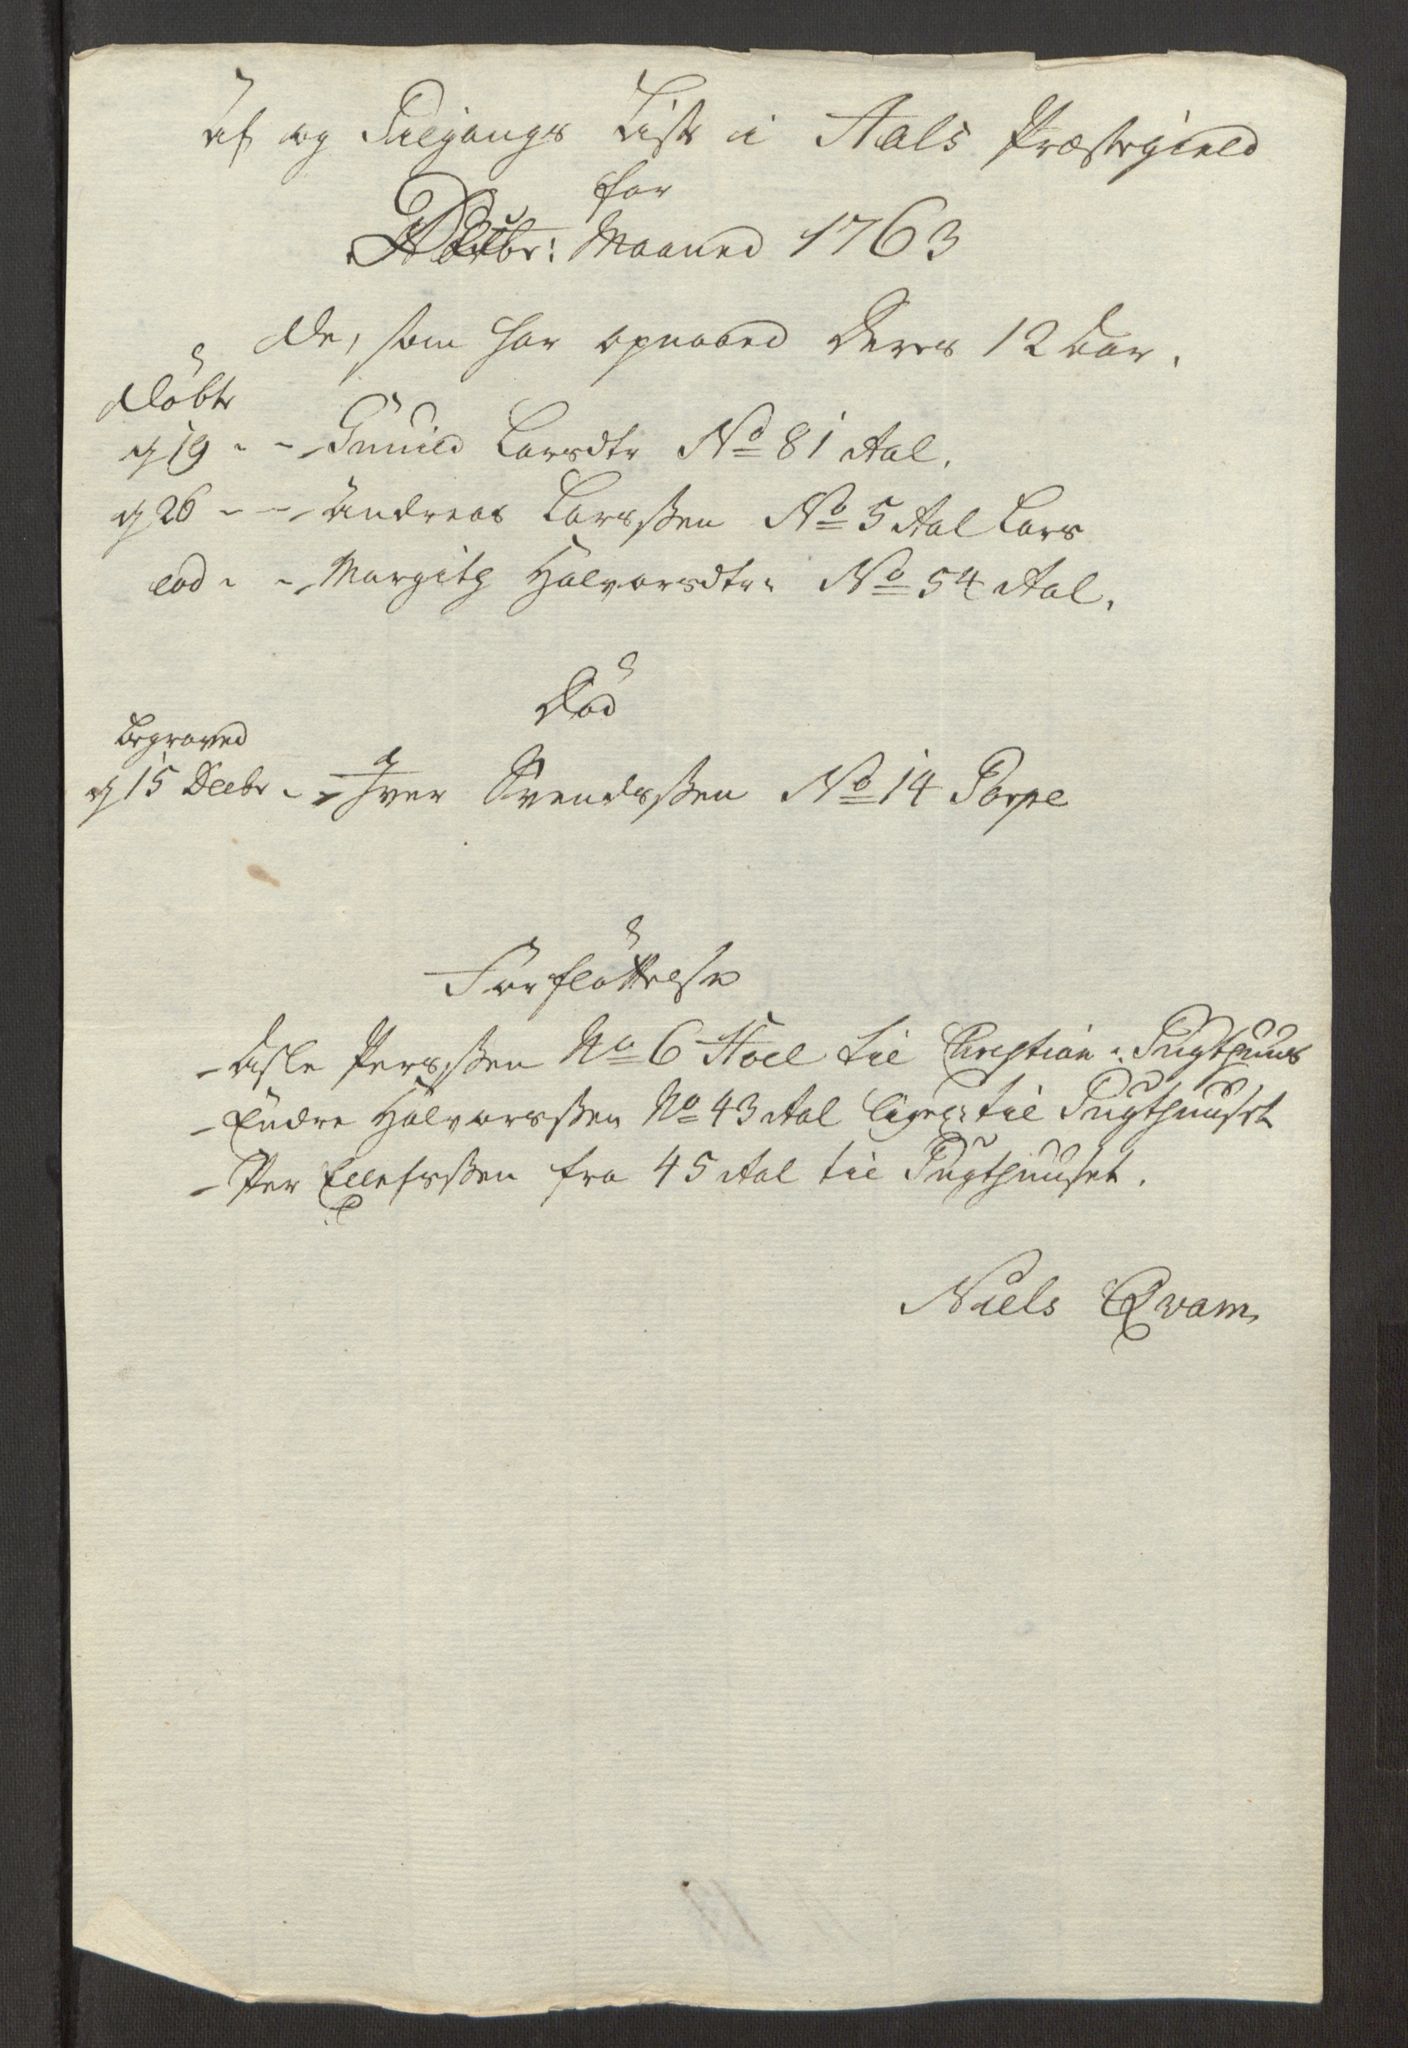 Af og Tilgangs Liste i Aals Præstegield
for
Decbr: Maaned 1763
De, som har opnaaed Deres 12 Aar.
Døbte
d 19 - - Gunild Larsdtr No 81 Aal.
d 26 - - Andreas Larssen No 5 Aal Lars
eod - - Margith Halvorsdtr: No 54 Aal.
Død
begraved
d 15 Decbr - Iver Svendssen No 14 Torpe
Forfløttelse
- Asle Perssen No 6 Hoel til Christian: Tugthuus
- Endre Halvorssen No 43 Aal ligel: til Tugthuuset
- Per Ellefssen fra 45 Aal til Tugthuuset.
Niels Qvam